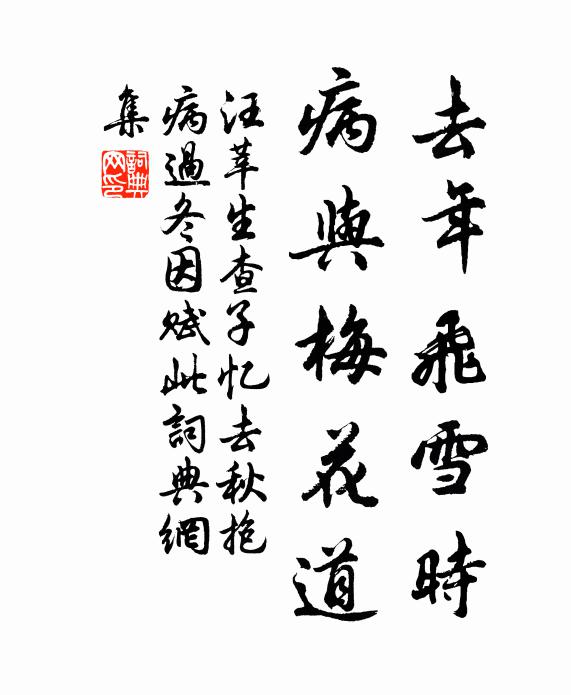 去年飛雪時
病與梅花道
汪莘生查子忆去秋抱
病過冬因賦此詞典網
集
詞典
网印